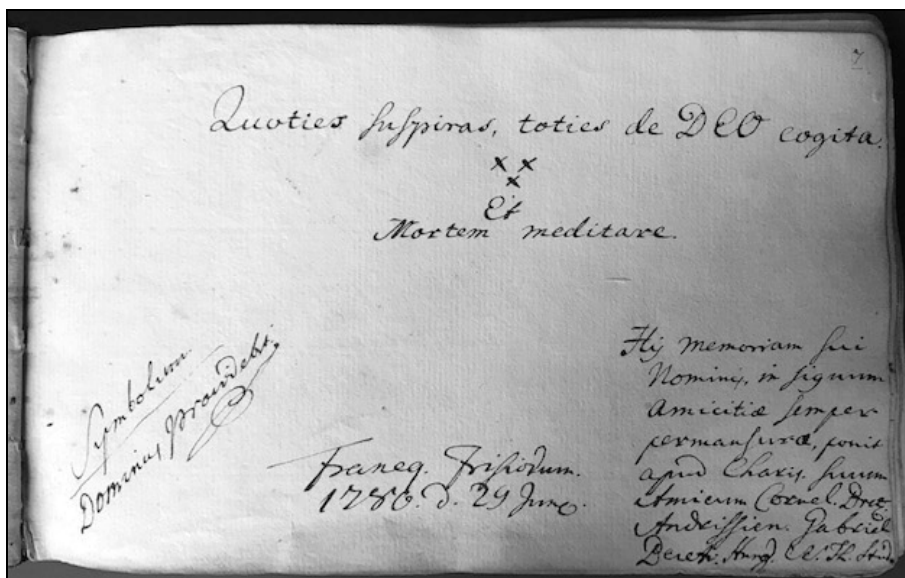 7
Quoties suspiras, toties de DEO cogita.
Et
Mortem meditare.
Symbolum
Dominus providebit.
Franeq. Frisiorum.
1786. d. 29 Juny.
Hij memoriam sui
Nominis, in signum
Amicitiæ semper
permansuræ, ponit
apud Chariss. suum
Amicum Cornel.
Andrissien. Gabriel
Hung.